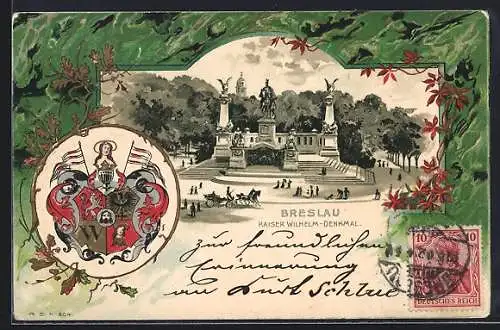 BRESLAU
KAISER WILHELM-DENKMAL.
W
10 10
DEUTSCHES REICH
zur freundlichen
Erinnerung
an Kurt